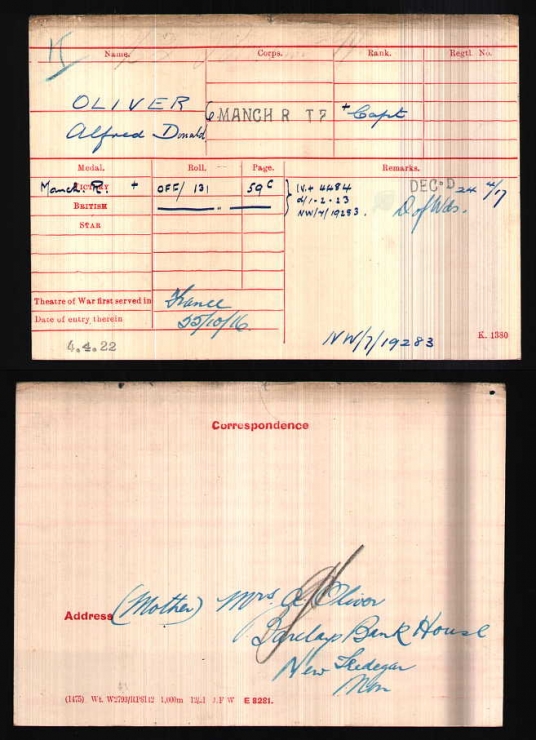 Name. Corps. Rank. Regtl. No.
OLIVER
6 MANCH R TF + Capt
Alfred Donald
Medal. Roll. Page. Remarks.
Manch R. + OFF/ 131 59C IV.+ 4484 DEC'D 24/4/17
VICTORY
d/1-2-23
BRITISH — " — NW/7/19283. D of Wds.
STAR
Theatre of War first served in France
Date of entry therein 25/10/16.
4.4.22 NW/7/19283 K. 1380
Correspondence
Address (Mother) Mrs. A Oliver
Barclays Bank House
New Tredegar
Mon
(1475) Wt. 1,000m J.F W E 8281.